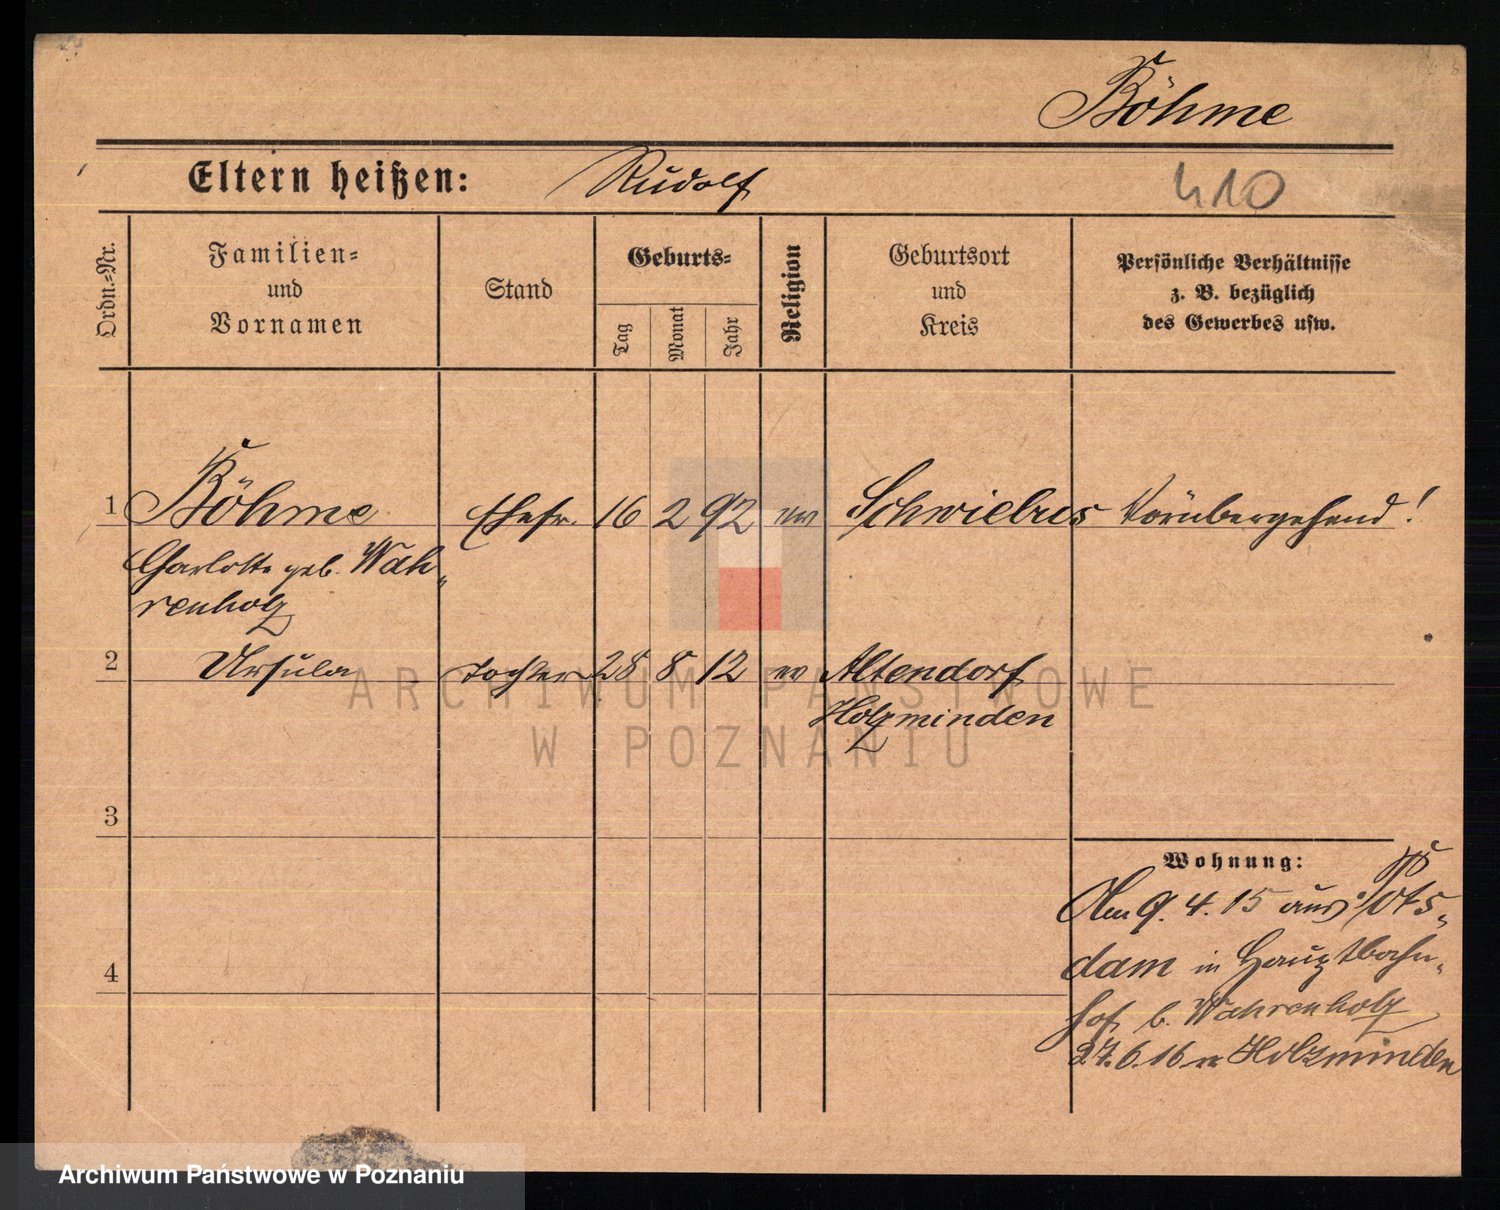 Böhme
Eltern heißen: Rudolf
410
Ordn.-Nr.
Familien-
und
Vornamen
Stand
Geburts-
Tag
Monat
Jahr
Religion
Geburtsort
und
Kreis
Persönliche Verhältnisse
z. B. bezüglich
des Gewerbes usw.
1 Böhme Ehefr. 16 2 92 ev Schwiebus Vorübergehend!
Charlotte geb. Wah-
renholz
2 Ursula Tochter 28 8 12 ev Altendorf
Holzminden
3
4
Wohnung:
Am 9. 4. 15 aus Pots-
dam in Hauptbahn-
hof b. Wahrenholz
27.6.16 n Holzminden
ARCHIWUM PAŃSTWOWE
W POZNANIU
Archiwum Państwowe w Poznaniu